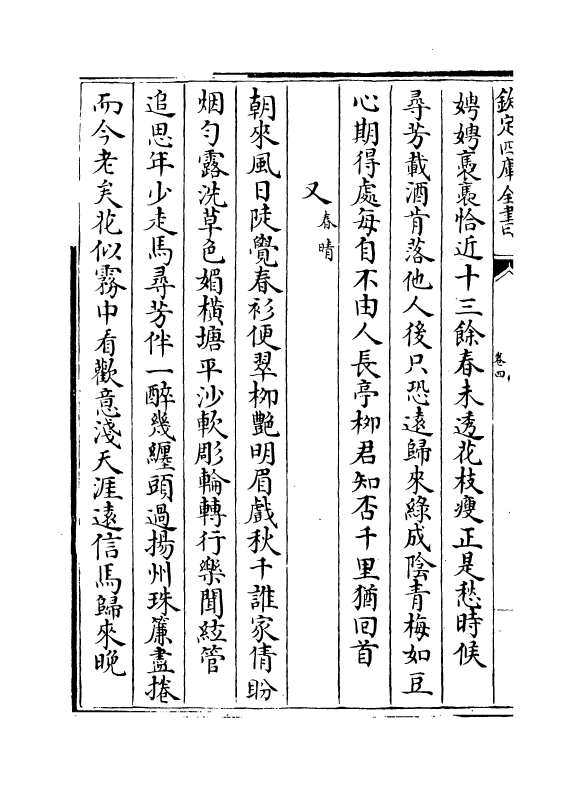 欽定四庫全書
卷四
娉娉裊裊恰近十三餘春未透花枝瘦正是愁時候
尋芳載酒肯落他人後只恐遠歸來綠成陰青梅如豆
心期得處每自不由人長亭柳君知否千里猶回首
又春晴
朝來風日陡覺春衫便翠柳艷明眉戲秋千誰家倩盼
烟勻露洗草色媚橫塘平沙軟彫輪轉行樂聞絃管
追思年少走馬尋芳伴一醉幾纏頭過揚州珠簾盡捲
而今老矣花似霧中看歡意淺天涯遠信馬歸來晚